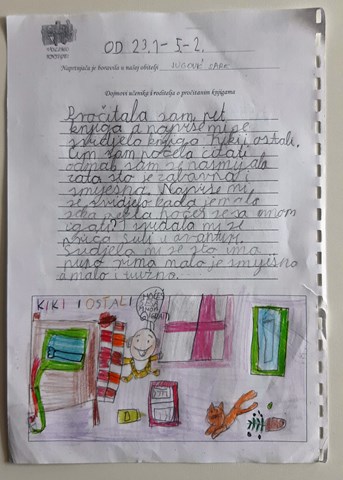 OD 23.1-5.2.
Naprtnjača je boravila u našoj obitelji
Dojmovi učenika i roditelja o pročitanim knjigama
Pročitala sam pet
knjiga a najviše mi se
svidjela knjiga Kiki i ostali.
Čim sam počela čitati
odmah sam se nasmijala
zato što je zabavna i
smiješna. Najviše mi
se svidjelo kada je malo
rekla hoćeš se sa mnom
igrati? Svidjela mi se
priča Luli u avanturi.
Svidjela mi se što ima
puno rima malo je smiješna
a malo i tužno.
KIKI I OSTALI
HOĆEŠ